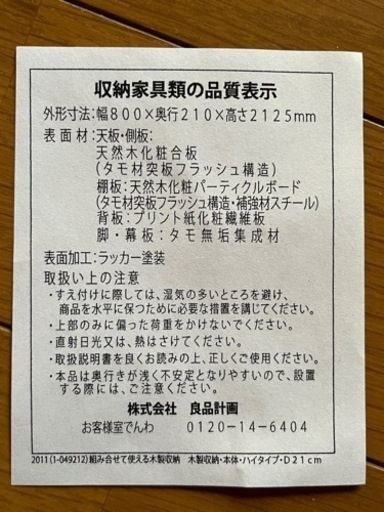 収納家具類の品質表示
外形寸法:幅800×奥行210×高さ2125mm
表面材:天板・側板:
天然木化粧合板
(タモ材突板フラッシュ構造)
棚板:天然木化粧パーティクルボード
(タモ材突板フラッシュ構造・補強材スチール)
背板:プリント紙化粧繊維板
脚・幕板:タモ無垢集成材
表面加工:ラッカー塗装
取扱い上の注意
・すえ付けに際しては、湿気の多いところを避け、
商品を水平に保つために必要な措置を講じてください。
・上部のみに偏った荷重をかけないでください。
・直射日光又は、熱はさけてください。
・取扱説明書を良くお読みの上、正しくご使用ください。
・本品は奥行きが浅く不安定となりやすいので、設置
する際には、ご注意ください。
株式会社 良品計画
お客様室でんわ 0120-14-6404
2011(1-049212)組み合せて使える木製収納 木製収納・本体・ハイタイプ・D21cm